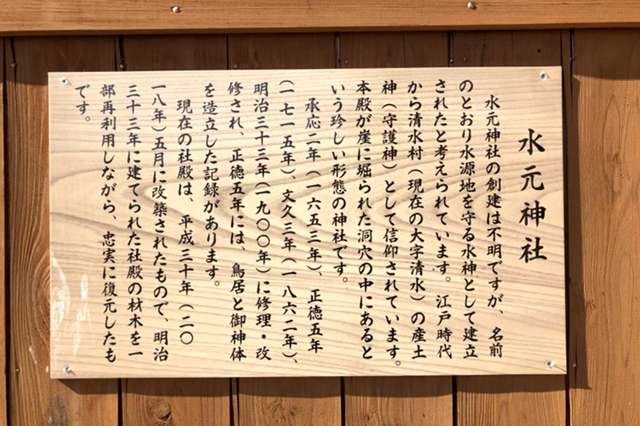 水元神社
水元神社の創建は不明ですが、名前
のとおり水源地を守る水神として建立
されたと考えられています。江戸時代
から清水村(現在の大字清水)の産土
神(守護神)として信仰されています。
本殿が崖に堀られた洞穴の中にあると
いう珍しい形態の神社です。
承応二年(一六五三年)、正徳五年
(一七一五年)、文久三年(一八六二年)、
明治三十三年(一九〇〇年)に修理・改
修され、正徳五年には、鳥居と御神体
を造立した記録があります。
現在の社殿は、平成三十年(二〇
一八年)五月に改築されたもので、明治
三十三年に建てられた社殿の材木を一
部再利用しながら、忠実に復元したも
です。